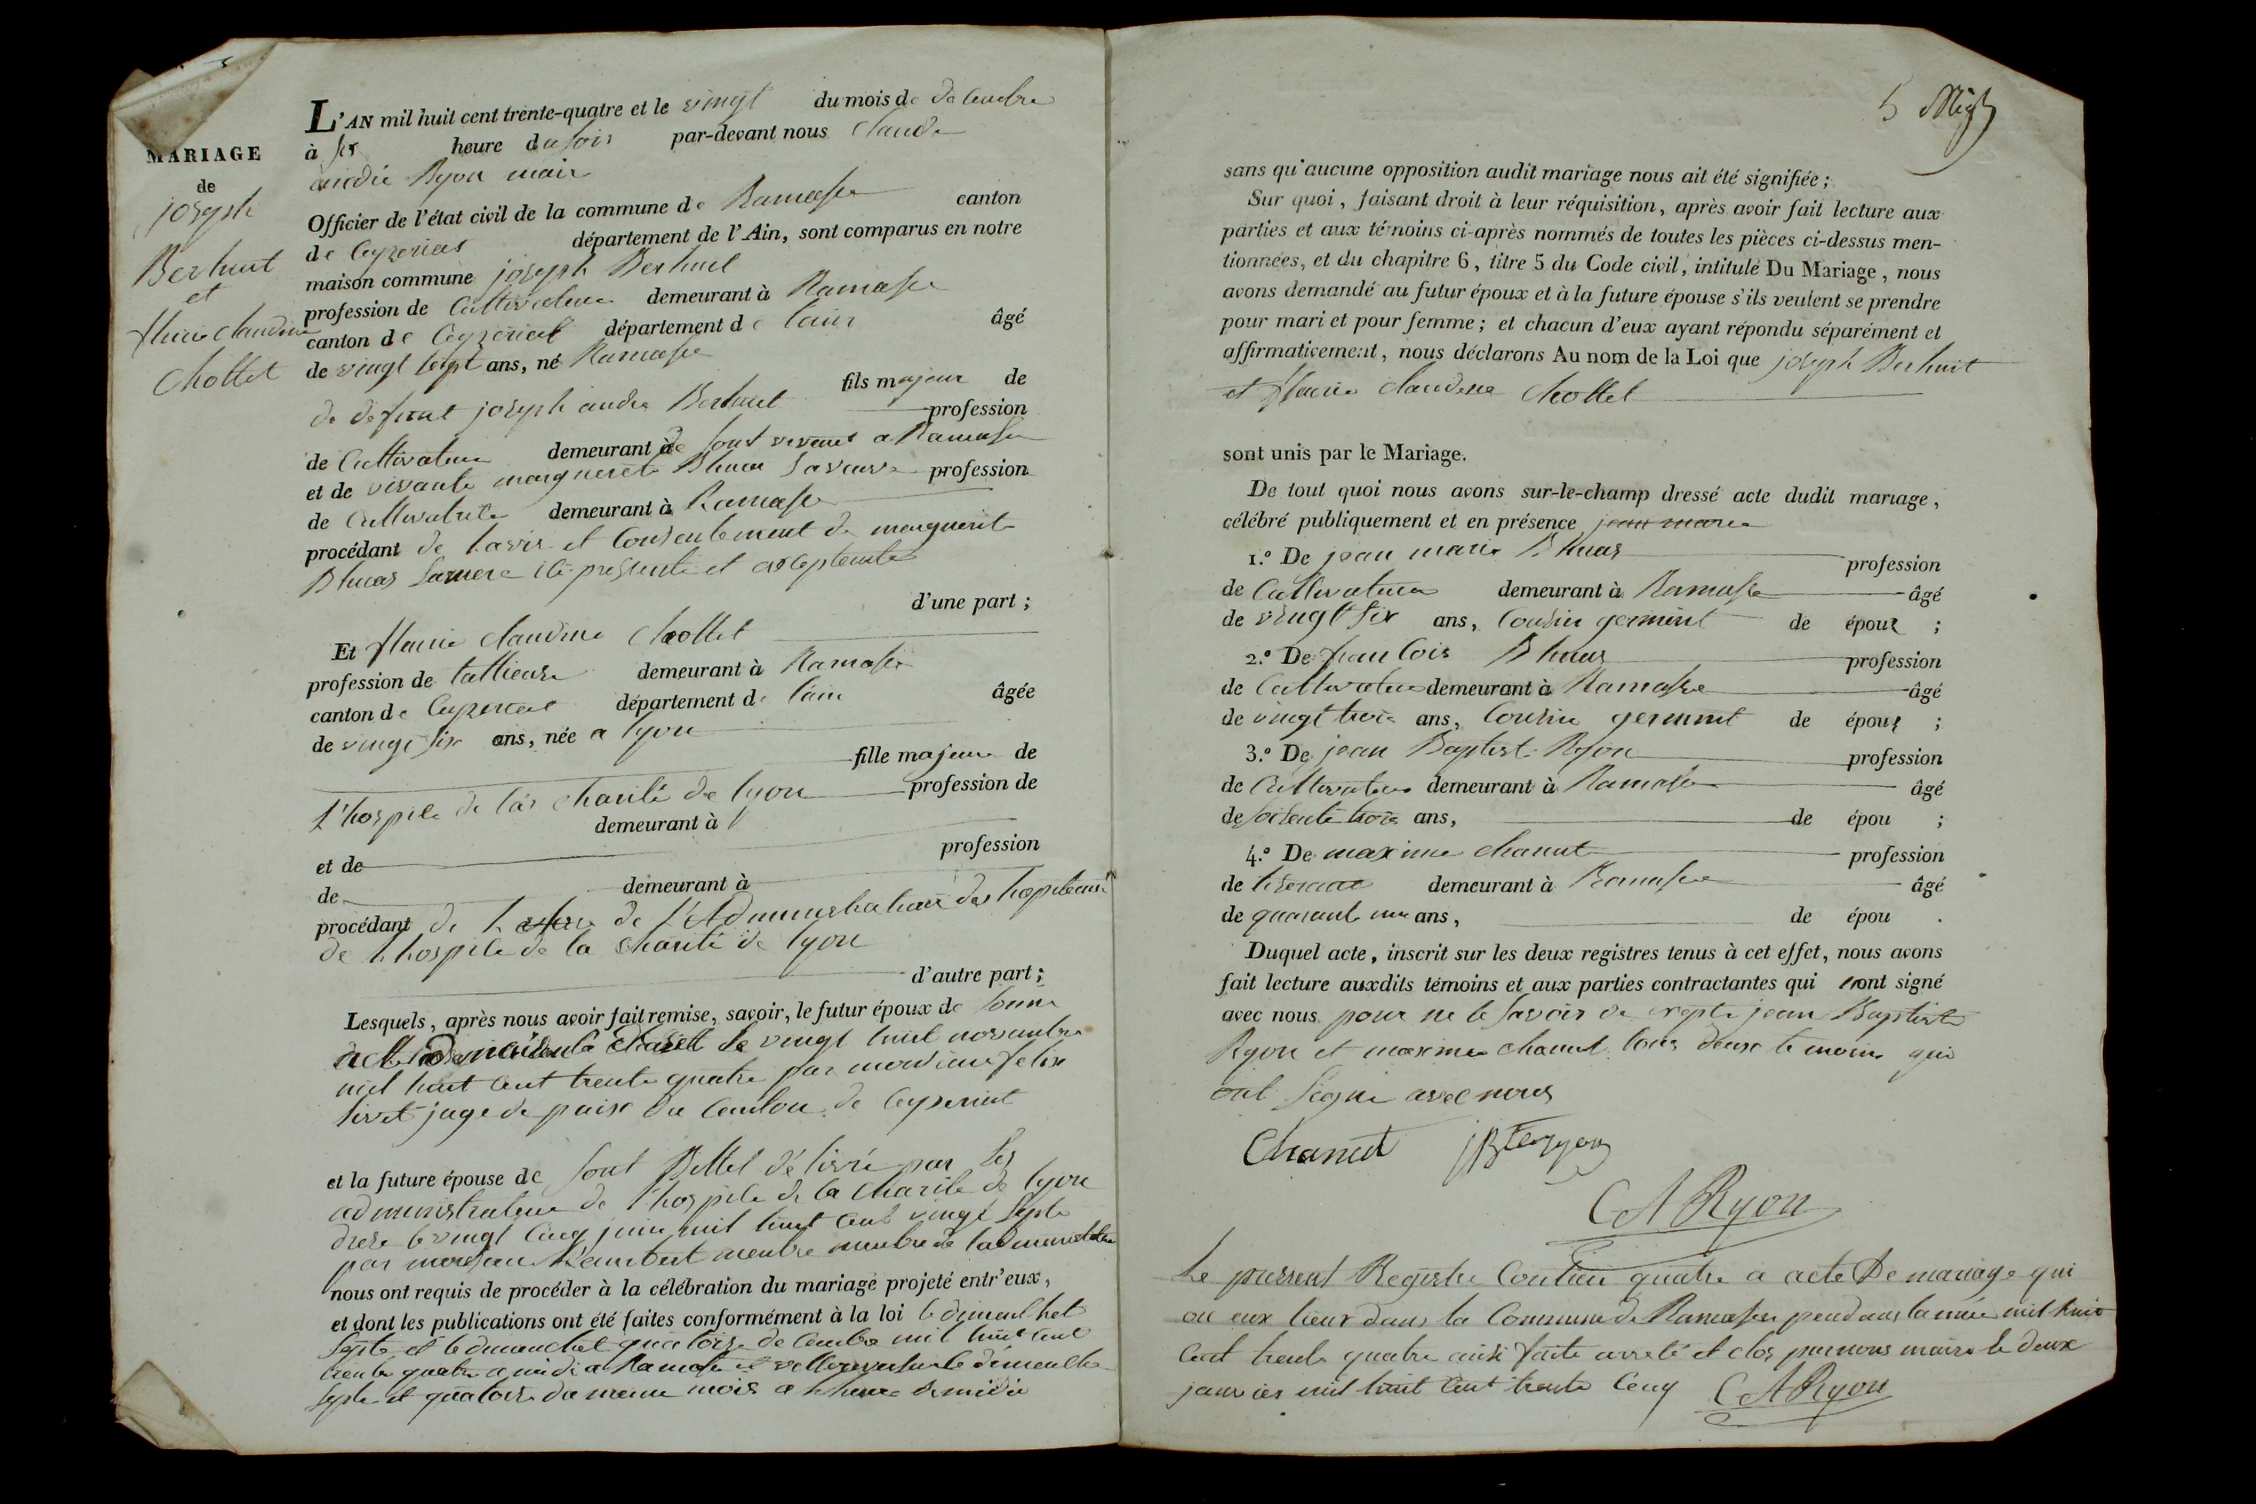 MARIAGE
de
joseph
Berhuit
et
Marie claudine
Chollet
L'AN mil huit cent trente-quatre et le vingt du mois de decembre
à six heure du soir par-devant nous claude
andré Ryon maire
Officier de l'état civil de la commune de Ramasse canton
de Ceyzeriat département de l'Ain, sont comparus en notre
maison commune joseph Berhuit
profession de Cultivateur demeurant à Ramasse
canton de Ceyzeriat département de lain âgé
de vingt sept ans, né Ramasse
fils majeur de
de defunt joseph andre Berhuit profession
de Cultivateur demeurant à de sont vivant a Ramasse
et de vivante marguerite Bluas sa veuve profession
de Cultivatrice demeurant à Ramasse
procédant de lavis et Consentement de marguerite
Bluas samere ici presente et acceptente
d'une part ;
Et Marie claudine Chollet
profession de tallieuse demeurant à Ramasse
canton de Ceyzeriat département de lain âgée
de vingt six ans, née a lyon
fille majeure de
l'hospice de la charité de lyon profession de
demeurant à
et de profession
de demeurant à
procédant de de l'Administration des hopiteaux
de lhospice de la charité de lyon
d'autre part ;
Lesquels, après nous avoir fait remise, savoir, le futur époux de
acte le vingt huit novembre
mil huit cent trente quatre par monsieur felix
sivet juge de paix du Canton de Ceyzeriat
et la future épouse de sont Billet délivré par les
administrateur de lhospice de la charité de lyon
le vingt cinq juin mil huit cent vingt sept
par monsieur membre membre de
nous ont requis de procéder à la célébration du mariage projeté entr'eux,
et dont les publications ont été faites conformément à la loi le
septe et le quatorze decembre mil huit cent
trente quatre a midi a Ramasse et le dimenche
septe et quatorze du meme mois a lheure de midi
5 
sans qu'aucune opposition audit mariage nous ait été signifiée ;
Sur quoi, faisant droit à leur réquisition, après avoir fait lecture aux
parties et aux témoins ci-après nommés de toutes les pièces ci-dessus men-
tionnées, et du chapitre 6, titre 5 du Code civil, intitulé Du Mariage, nous
avons demandé au futur époux et à la future épouse s'ils veulent se prendre
pour mari et pour femme ; et chacun d'eux ayant répondu séparément et
affirmativement, nous déclarons Au nom de la Loi que joseph Berhuit
et Marie claudine Chollet
sont unis par le Mariage.
De tout quoi nous avons sur-le-champ dressé acte dudit mariage,
célébré publiquement et en présence jean marie
1.º De jean marie Bluas profession
de Cultivateur demeurant à Ramasse âgé
de vingt six ans, Cousin germint de époux ;
2.º De francois Bluas profession
de Cultivateur demeurant à Ramasse âgé
de vingt trois ans, Cousin germint de époux ;
3.º De jean Baptist Ryon profession
de Cultivateur demeurant à Ramasse âgé
de soisente trois ans, de épou ;
4.º De maxime chanut profession
de demeurant à Ramasse âgé
de quarante un ans, de épou .
Duquel acte, inscrit sur les deux registres tenus à cet effet, nous avons
fait lecture auxdits témoins et aux parties contractantes qui nont signé
avec nous pour ne le savoir de excepte jean Baptiste
Ryon et maxime chanut tous deux temoins qui
ont signé avec nous
Chanut JBte ryon
C A Ryon
Le present Registre Contien quatre acte De mariage qui
ou eux lieux dans la Commune de Ramasse pendant lannée mil huit
cent trente quatre ainsi fait arreté et clos par nous maire le deux
janvier mil huit cent trente Cinq C A Ryon